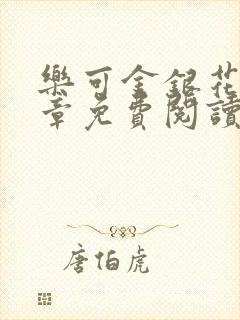 樂可金銀花
章免費閱讀
唐伯虎